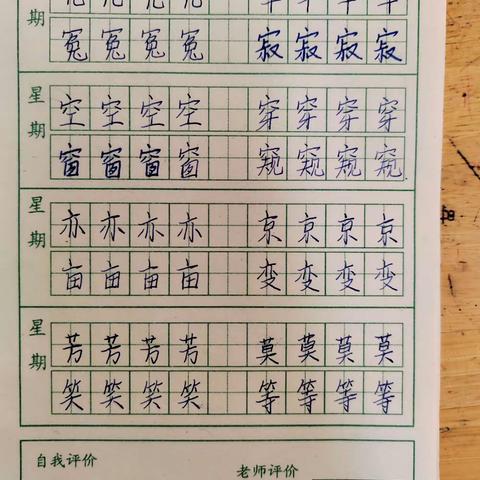 期 冤 冤 冤 冤 寂 寂 寂 寂
星 空 空 空 空 穿 穿 穿 穿
期 窗 窗 窗 窗 窥 窥 窥 窥
星 亦 亦 亦 亦 京 京 京 京
期 亩 亩 亩 亩 变 变 变 变
星 芳 芳 芳 芳 莫 莫 莫 莫
期 笑 笑 笑 笑 等 等 等 等
自我评价 老师评价